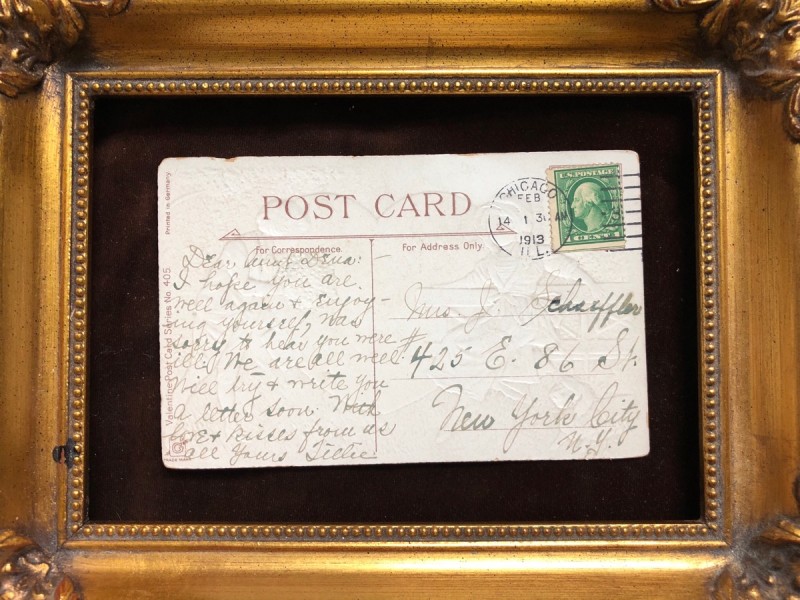 POST CARD
For Correspondence.
For Address Only
Printed in Germany.
Valentine Post Card Series No. 405.
CHICAGO
FEB
14 1 30 AM
1913
ILL.
U.S. POSTAGE
1 CENT 1
Dear Aunt Dena: –
I hope you are
well again & enjoy-
ing yourself, was
sorry to hear you were
ill. We are all well.
Will try & write you
a letter soon. With
love & kisses from us
all Yours Tillie
Mrs. J. Schaeffler
# 425 E. 86 St.
New York City
N.Y.